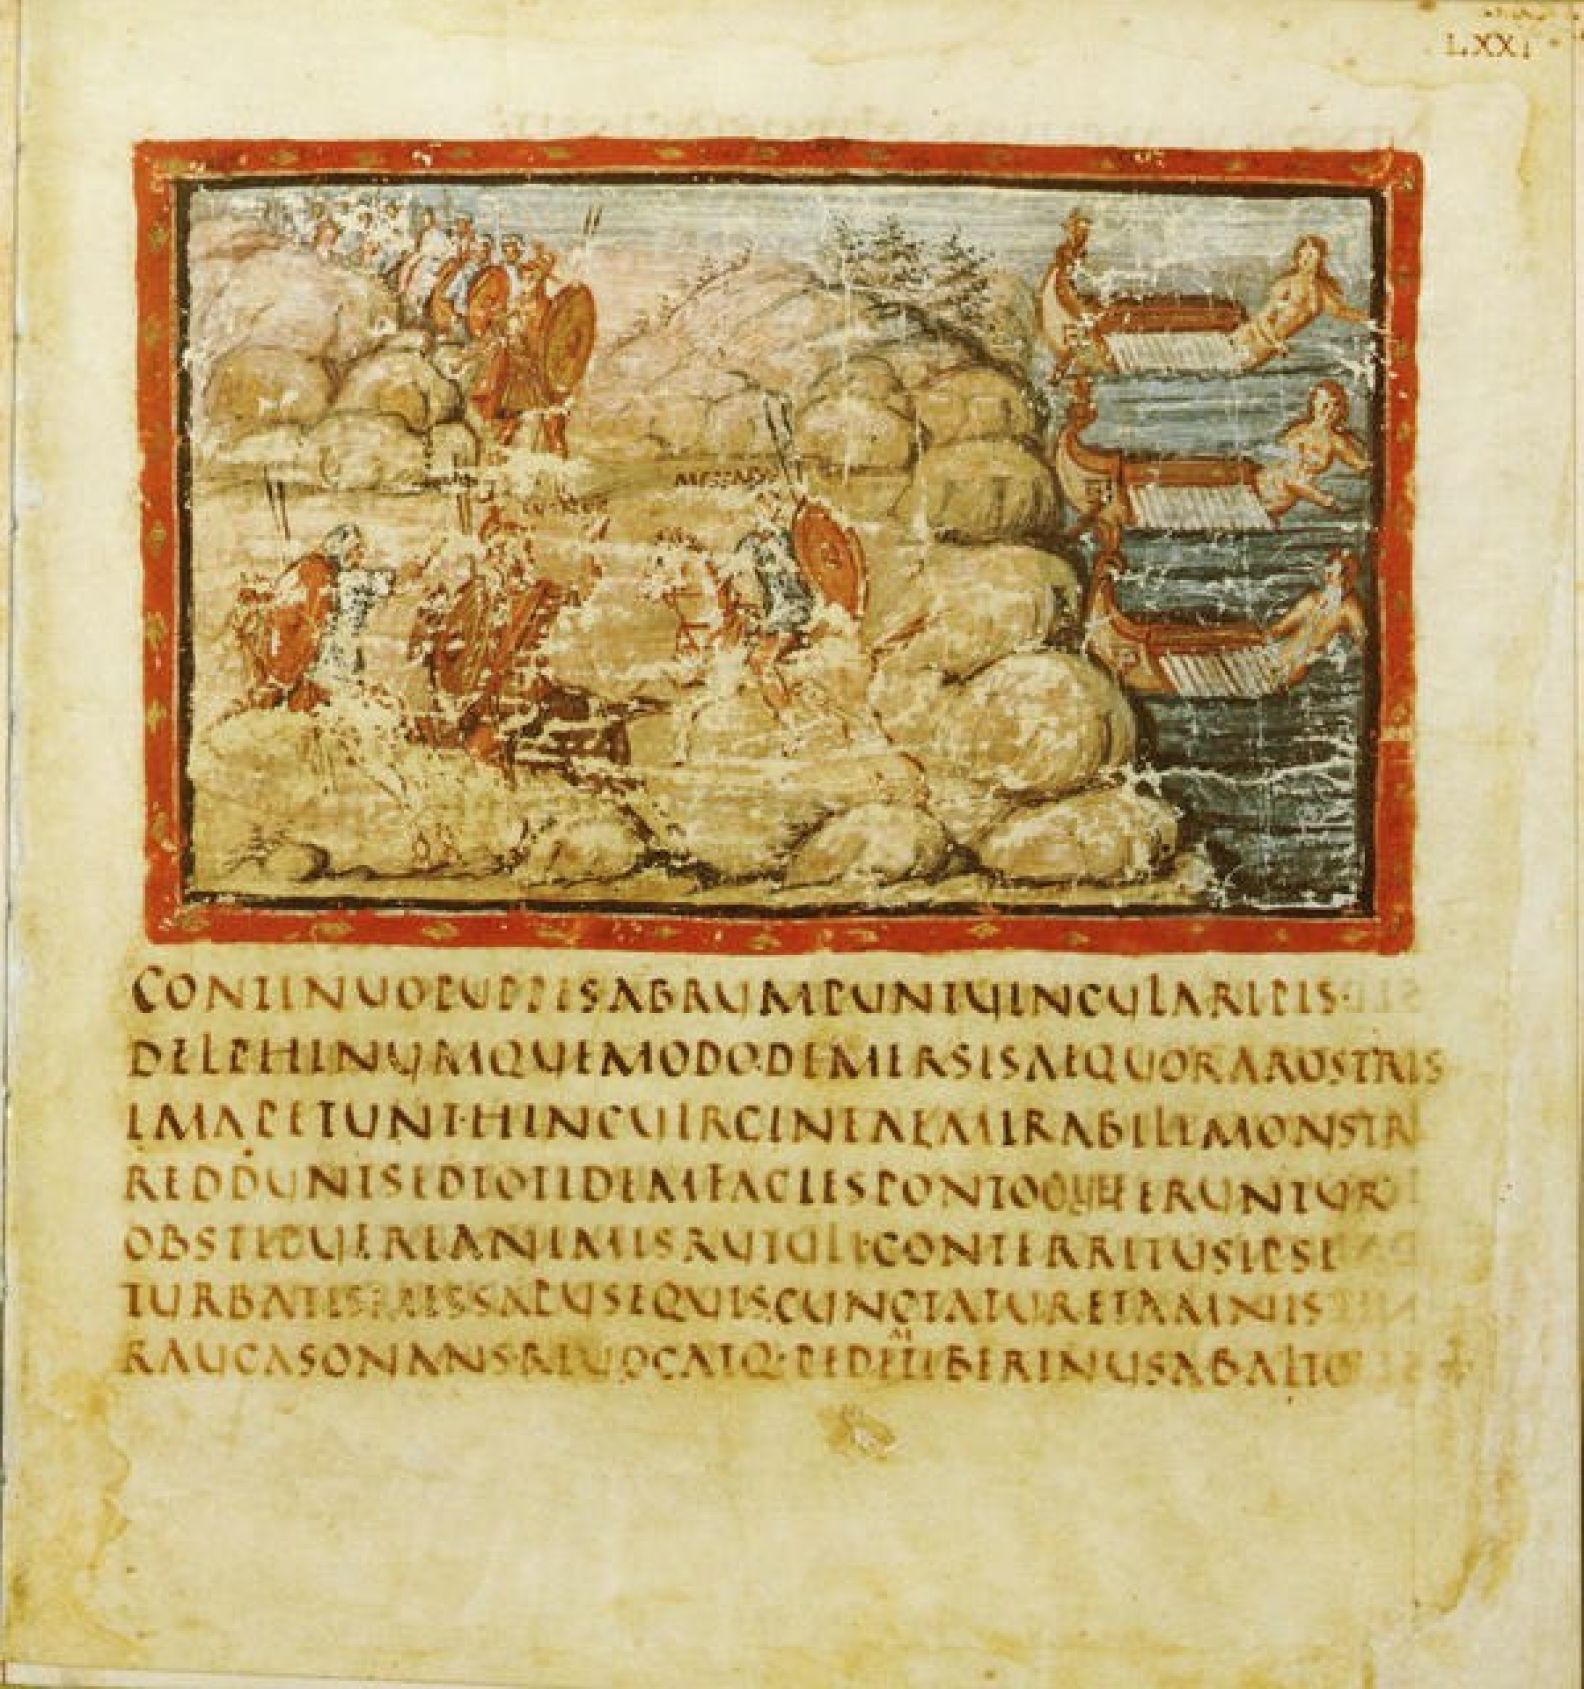 LXXI
MESSAPUS
CONTINUOPUPPESABRUMPUNTUINCULARIPIS·
DELPHINUMQUEMODO·DEMERSISAEQUORAROSTRIS
IMAPETUNT·HINCUIRGINEAEMIRABILEMONSTR
REDDUNTSEDTOTIDEMFACIESPONTOQUEFERUNTUR
OBSTIPUEREANIMISRUTULI·CONTERRITUSIPSE
TURBATISMESSAPUSEQUIS·CUNCTATURETAMNIS
RAUCASONANS·REUOCATQ·PEDEMTIBERINUSABALTO